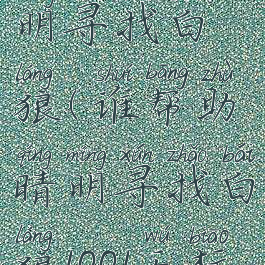 明寻找白
láng shuí bāng zhù
狼(谁帮助
qíng míng xún zhǎo bái
晴明寻找白
láng wú biāo
狼1001